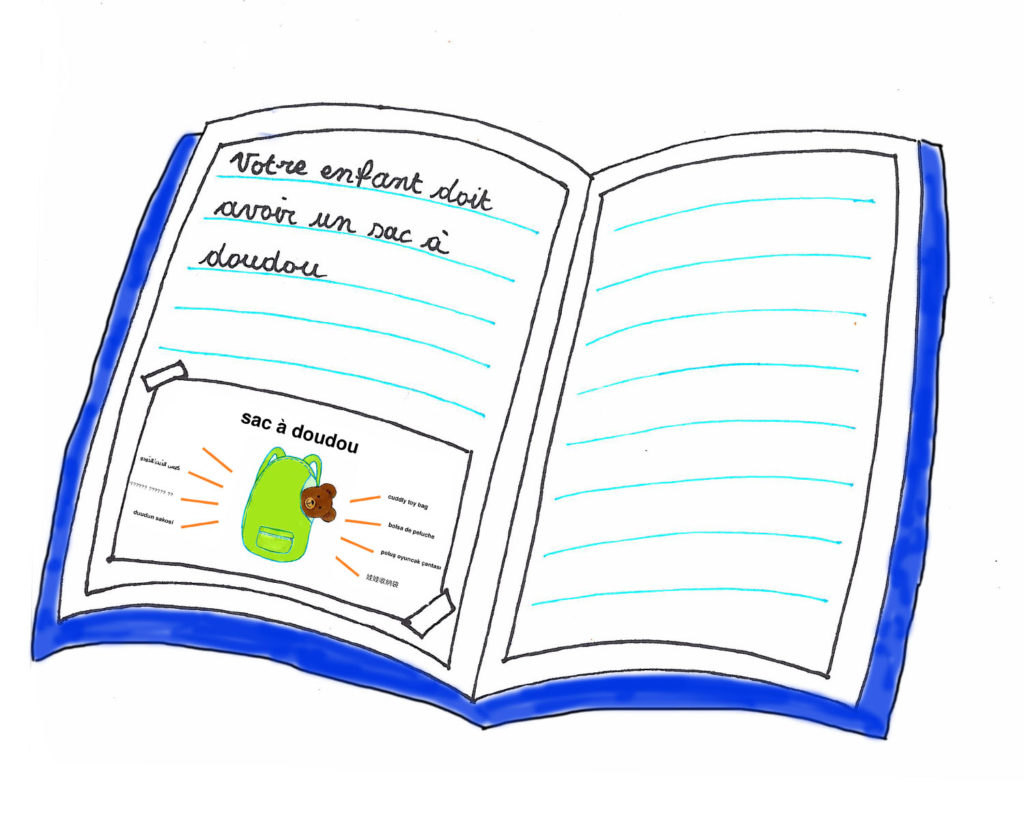 Votre enfant doit
avoir un sac à
doudou
sac à doudou
?????? ?????? ??
duudun sakosi
cuddly toy bag
bolsa de peluche
peluş oyuncak çantası
娃娃收纳袋